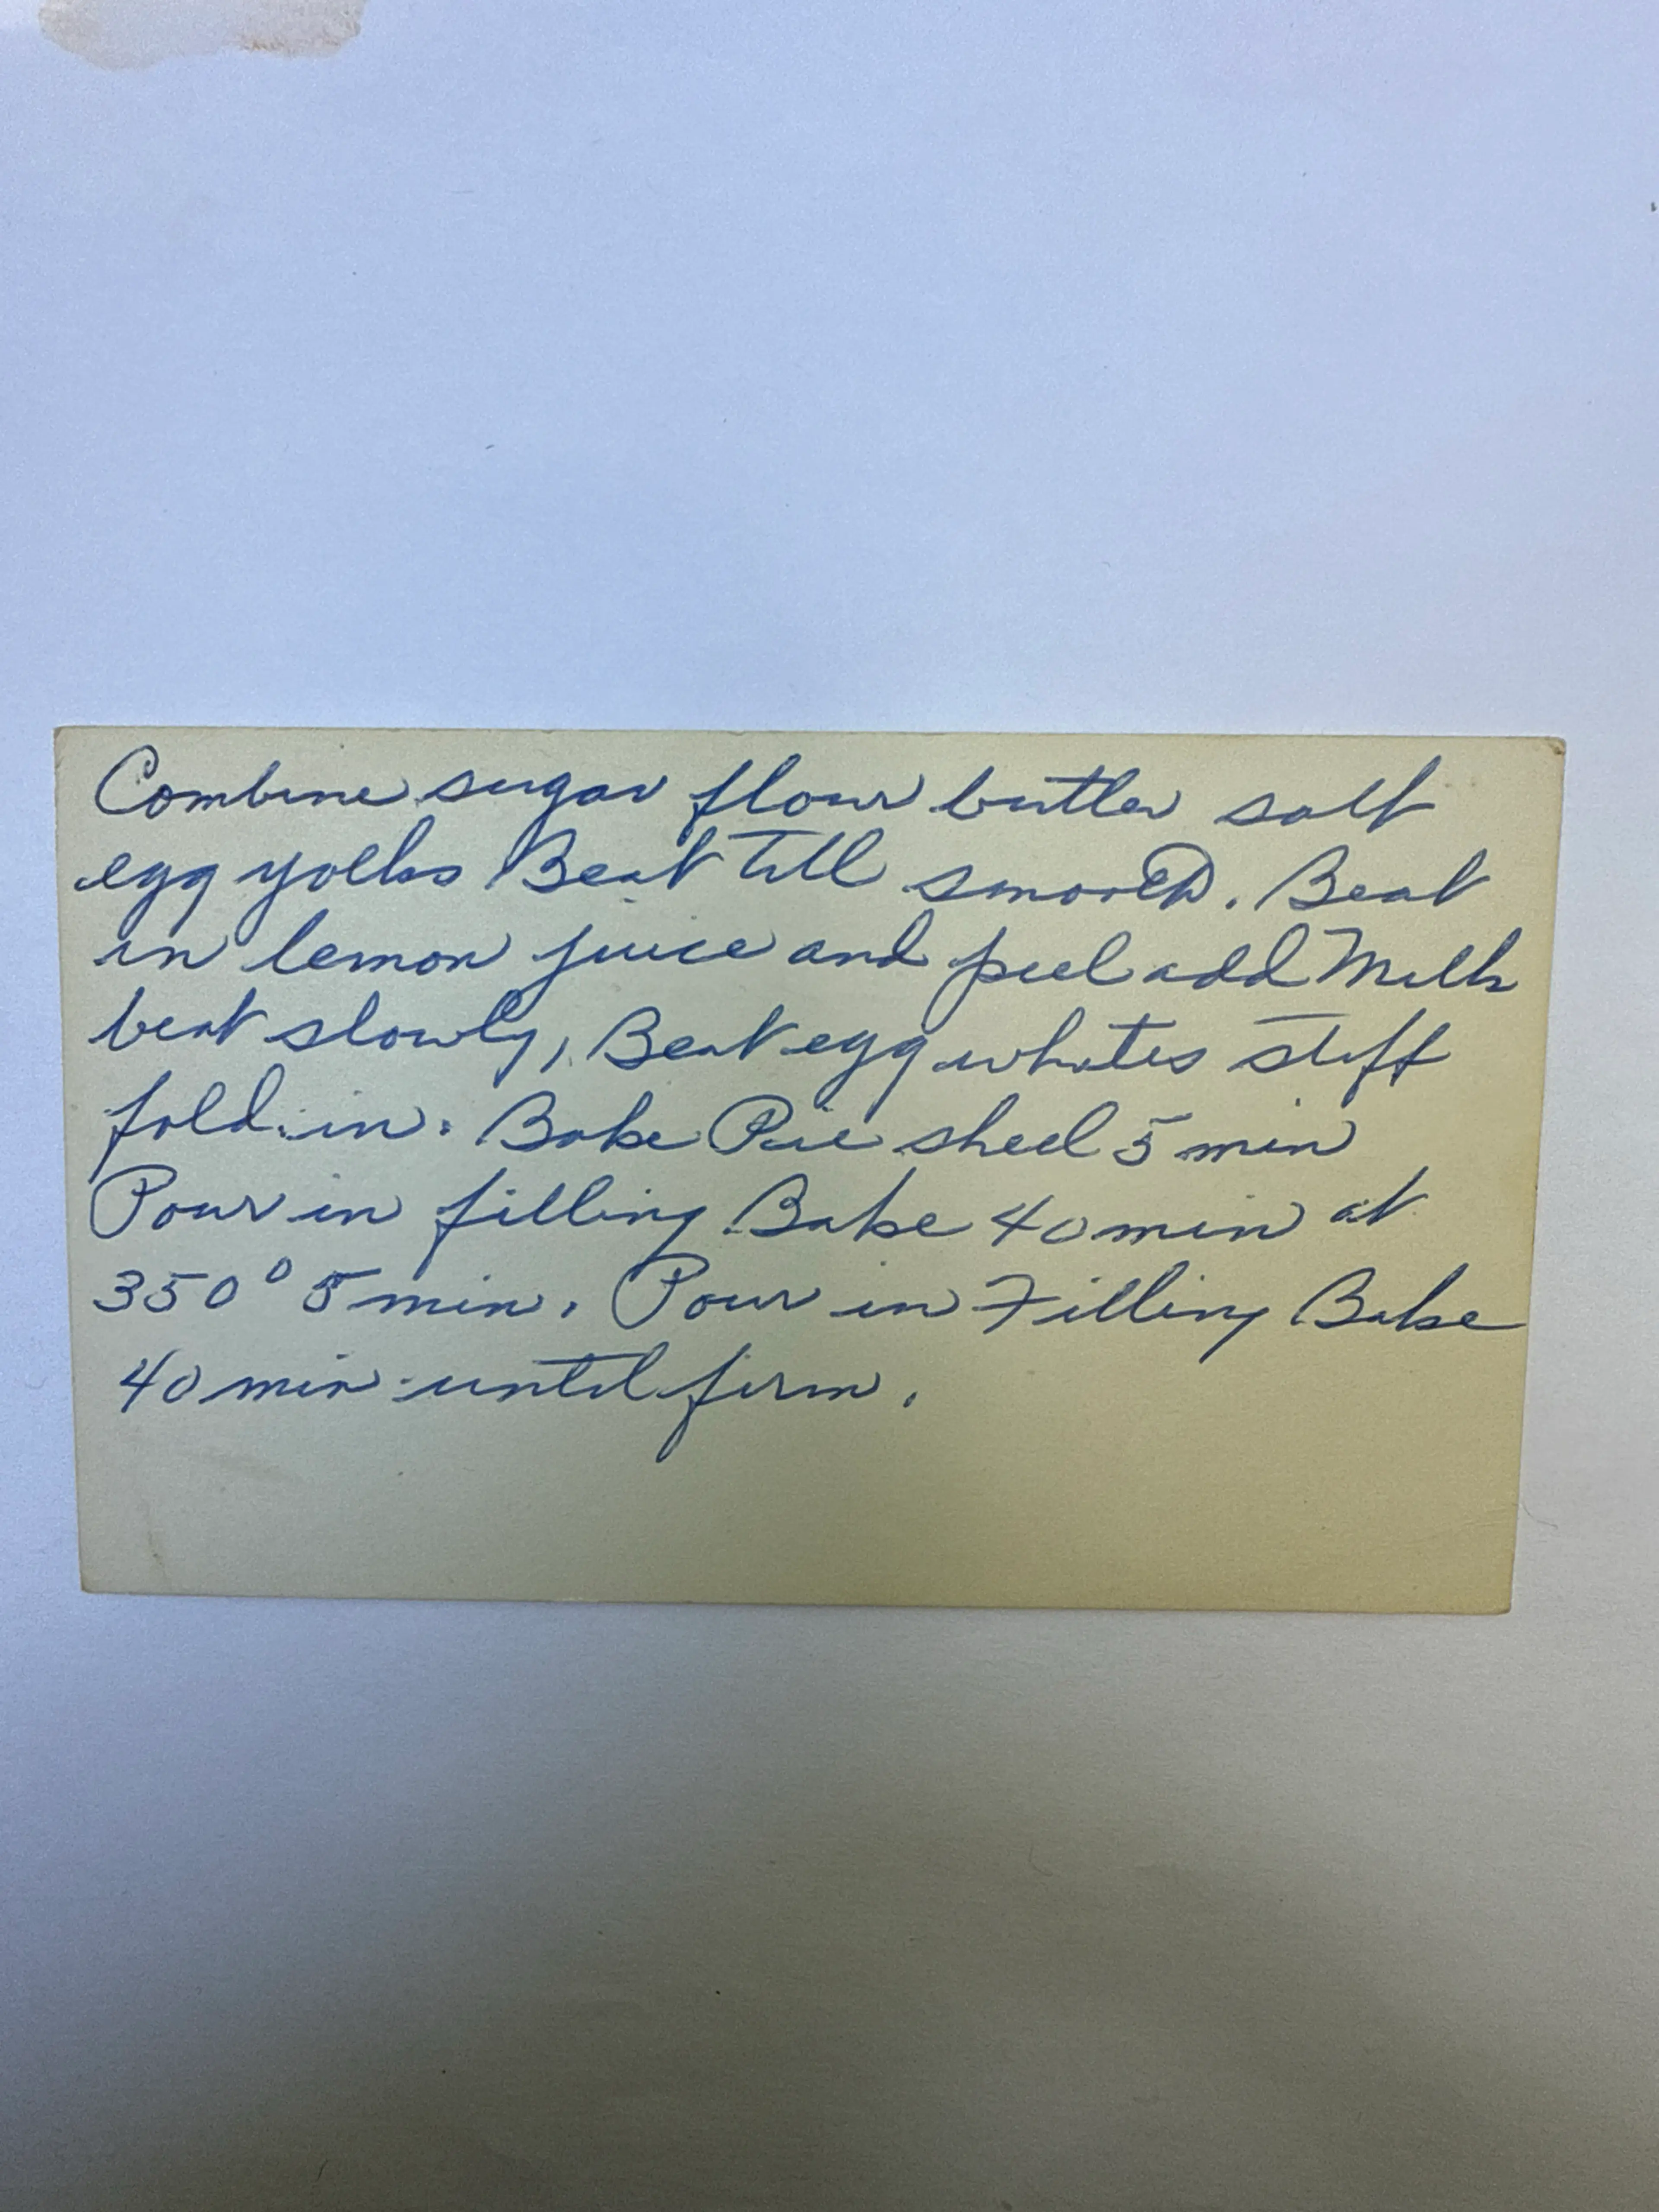 Combine sugar flour butter salt
egg yolks Beat till smooth. Beat
in lemon juice and peel add Milk
beat slowly, Beat egg whites stiff
fold in. Bake Pie shell 5 min
Pour in filling Bake 40 min at
350° 5 min. Pour in Filling Bake
40 min until firm.